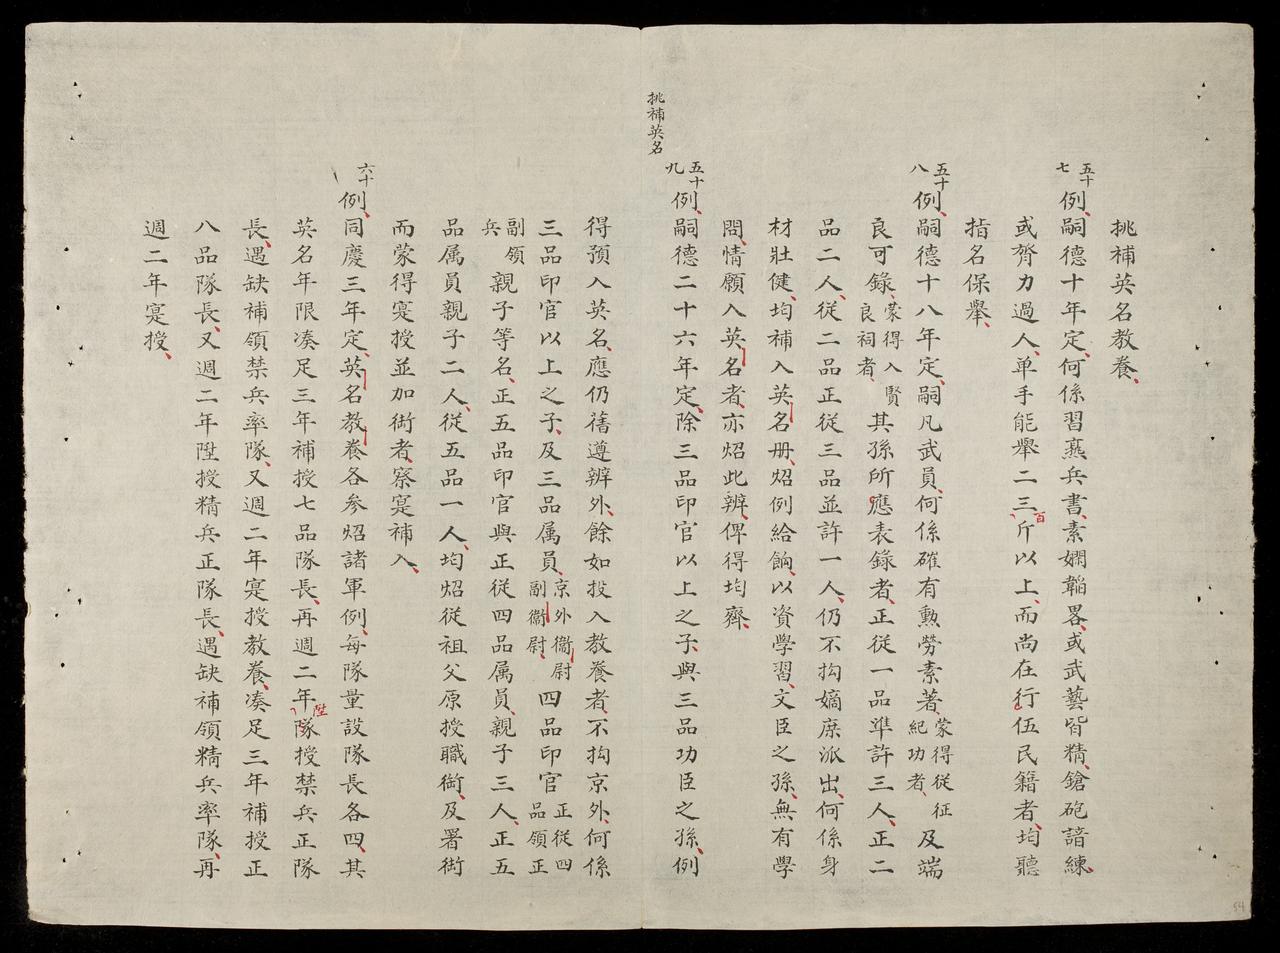 挑補英名教養
五十七例嗣德十年定何係習兵書素嫻韜畧或武藝皆精鎗砲諳練
或膂力過人單手能舉二三百斤以上而尚在行伍民籍者均聽
指名保舉
五十八例嗣德十八年定嗣凡武員何係確有勲勞素著蒙得從征紀功者及端
良可錄蒙得入賢良祠者其孫所應表錄者正從一品準許三人正二
品二人從二品正從三品並許一人仍不拘嫡庶派出何係身
材壯健均補入英名册炤例給餉以資學習文臣之孫無有學
問情願入英名者亦炤此辨俾得均齊
五十九例嗣德二十六年定除三品印官以上之子與三品功臣之孫例
挑補英名
得預入英名應仍舊遵辨外餘如投入教養者不拘京外何係
三品印官以上之子及三品属員京外衞尉副衞尉四品印官正從四品領正
副領兵親子等名正五品印官與正從四品属員親子三人正五
品属員親子二人從五品一人均炤從祖父原授職銜及署銜
而蒙得寔授並加銜者察寔補入
六十例同慶三年定英名教養各參炤諸軍例每隊量設隊長各四其
英名年限凑足三年補授七品隊長再週二年陞隊授禁兵正隊
長遇缺補領禁兵率隊又週二年寔授教養凑足三年補授正
八品隊長又週二年陞授精兵正隊長遇缺補領精兵率隊再
週二年寔授
54